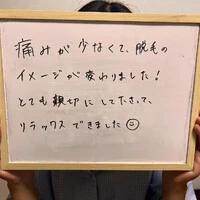 痛みが少なくて、脱毛の
イメージが変わりました！
とても親切にして下さって、
リラックスできました☺